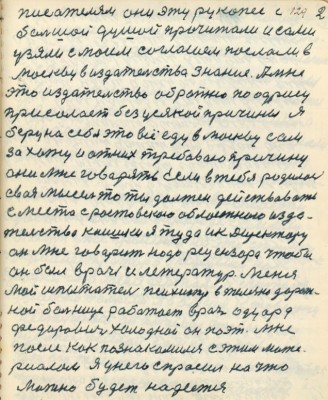 писателям они эту рукопес с 129 2
большой душий прочитали и сами
узяли с моим согласием послали в
москву в издательства знание. А мне
это издательство обратно по адрису
присолает без усякой причины я
беру на себя это всё еду в москву сам
захожу и отних требаваю причину
они мне говарять если в тебя родилас
своя мысел то ты должен действавать
с места с ростовского областного изда-
тельство книшки я туда ик директору
он мне говарить надо рецензора чтобы
он был врач и летератур. меня
мой испытател психиатр в железно дорож-
ной больнице работает врач эдуард
федорович холодной он поэт. мне
после как познакомился с этим мате-
риалом я у него спросил на што
можно будет надеется